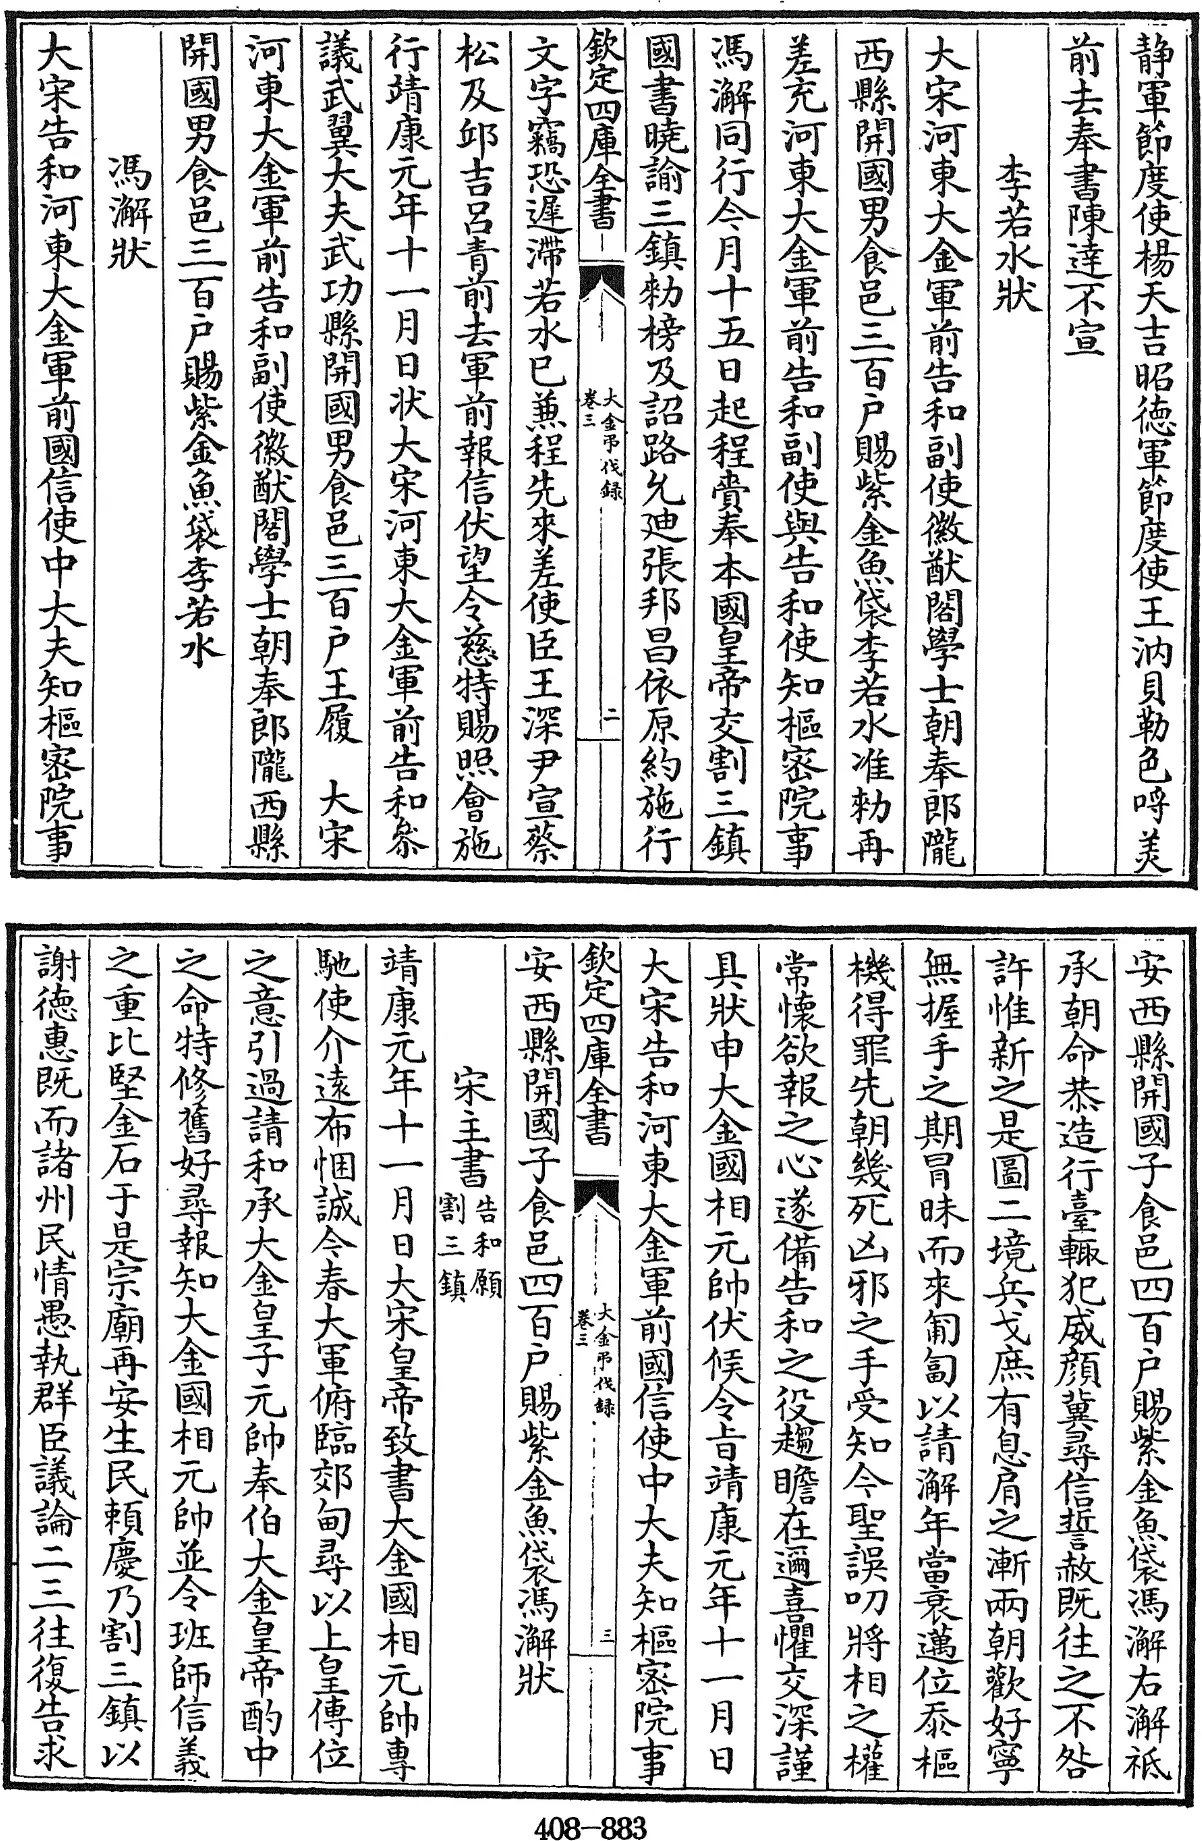 静軍節度使楊天吉昭德軍節度使王汭貝勒色哷美
前去奉書陳達不宣
李若水狀
大宋河東大金軍前告和副使徽猷閣學士朝奉郎隴
西縣開國男食邑三百户賜紫金魚袋李若水准勅再
差充河東大金軍前告和副使與告和使知樞密院事
馮澥同行今月十五日起程賫奉本國皇帝交割三鎮
國書曉諭三鎮勅榜及詔路允迪張邦昌依原約施行
欽定四庫全書
大金弔伐録
卷三
二
文字竊恐遲滯若水已兼程先來差使臣王深尹宣蔡
松及邱吉吕青前去軍前報信伏望令慈特賜照會施
行靖康元年十一月日状大宋河東大金軍前告和叅
議武翼大夫武功縣開國男食邑三百户王履 大宋
河東大金軍前告和副使徽猷閣學士朝奉郎隴西縣
開國男食邑三百户賜紫金魚袋李若水
馮澥狀
大宋告和河東大金軍前國信使中大夫知樞密院事
安西縣開國子食邑四百户賜紫金魚袋馮澥右澥祗
承朝命恭造行臺輒犯威顔冀尋信誓赦既往之不咎
許惟新之是圖二境兵戈庶有息肩之漸兩朝歡好寧
無握手之期冒昧而來匍匐以請澥年當衰邁位忝樞
機得罪先朝幾死凶邪之手受知今聖誤叨將相之權
常懷欲報之心遂備告和之役趨瞻在邇喜懼交深謹
具狀申大金國相元帥伏候令旨靖康元年十一月日
大宋告和河東大金軍前國信使中大夫知樞密院事
欽定四庫全書
大金弔伐録
卷三
三
安西縣開國子食邑四百户賜紫金魚袋馮澥狀
宋主書 告和願割三鎮
靖康元年十一月日大宋皇帝致書大金國相元帥專
馳使介遠布悃誠今春大軍俯臨郊甸尋以上皇傳位
之意引過請和承大金皇子元帥奉伯大金皇帝酌中
之命特修舊好尋報知大金國相元帥並令班師信義
之重比堅金石于是宗廟再安生民頼慶乃割三鎮以
謝德惠既而諸州民情愚執群臣議論二三往復告求
408-883